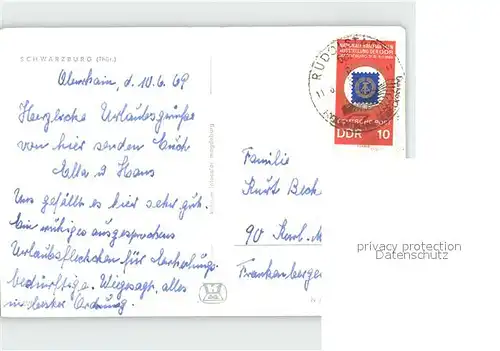 SCHWARZBURG (Thür.)
d. 10.6.69
Herzliche Urlaubsgrüße
von hier senden Euch
Ella u Hans
Uns gefällt es hier sehr gut.
Ein ruhiges ausgesprochenes
Urlaubsfleckchen für Erholungs-
bedürftige. Wie gesagt, alles
in bester Ordnung.
RUDOLSTADT
DEUTSCHE POST
DDR 10
Familie
Kurt Beck
90 Karl-M
Frankenberger
privacy protection
Datenschutz